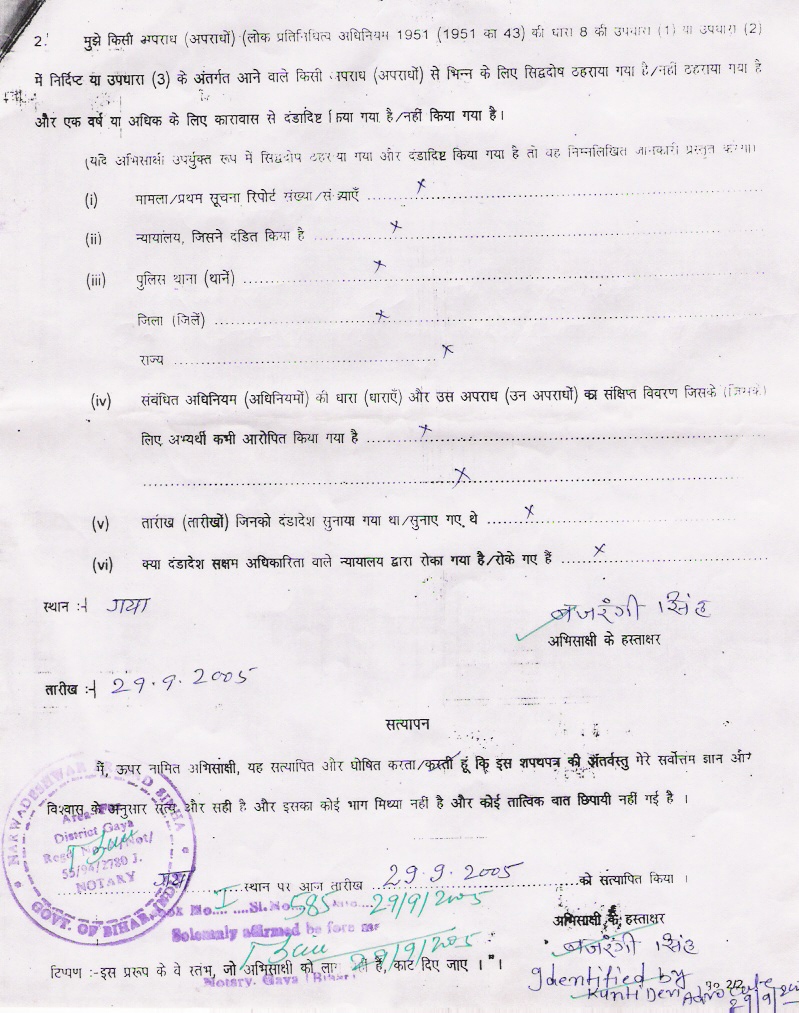 2. मुझे किसी अपराध (अपराधों) (लोक प्रतिनिधित्व अधिनियम 1951 (1951 का 43) की धारा 8 की उपधारा (1) या उपधारा (2)
में निर्दिष्ट या उपधारा (3) के अंतर्गत आने वाले किसी अपराध (अपराधों) से भिन्न के लिए सिद्वदोष ठहराया गया है/नहीं ठहराया गया है
और एक वर्ष या अधिक के लिए कारावास से दंडादिष्ट किया गया है/नहीं किया गया है।
(यदि अभिसाक्षी उपर्युक्त रूप में सिद्वदोष ठहराया गया और दंडादिष्ट किया गया है तो वह निम्नलिखित जानकारी प्रस्तुत करेगा।
(i) मामला/प्रथम सूचना रिपोर्ट संख्या/संख्याएँ ........ x ........
(ii) न्यायालय, जिसने दंडित किया है ........ x ........
(iii) पुलिस थाना (थानें) ........ x ........
जिला (जिलें) ........ x ........
राज्य ........ x
(iv) संबंधित अधिनियम (अधिनियमों) की धारा (धाराएँ) और उस अपराध (उन अपराधों) का संक्षिप्त विवरण जिसके (जिनके)
लिए अभ्यर्थी कभी आरोपित किया गया है ........ x ........
........ x ........
(v) तारीख (तारीखों) जिनको दंडादेश सुनाया गया था/सुनाए गए थे ........ x ........
(vi) क्या दंडादेश सक्षम अधिकारिता वाले न्यायालय द्वारा रोका गया है/रोके गए हैं ........ x ........
स्थान :- गया
बजरंगी सिंह
अभिसाक्षी के हस्ताक्षर
तारीख :- 29.9.2005
सत्यापन
मैं, ऊपर नामित अभिसाक्षी, यह सत्यापित और घोषित करता/करती हूं कि इस शपथपत्र की अंतर्वस्तु मेरे सर्वोत्तम ज्ञान और
विश्वास के अनुसार सत्य और सही है और इसका कोई भाग मिथ्या नहीं है और कोई तात्विक बात छिपायी नहीं गई है ।
NARWADESHWAR PRASAD SINHA
Area
District Gaya
Regd
55/94/2780 J.
NOTARY
GOVT. OF BIHAR, INDIA
गया ........ स्थान पर आज तारीख ........ 29.9.2005 ........ को सत्यापित किया ।
Book No. I Sl. No. 585 29/9/2005
Solemnly affirmed before me
29/9/2005
Notary, Gaya (Bihar)
अभिसाक्षी के हस्ताक्षर
बजरंगी सिंह
टिप्पण :-इस प्ररूप के वे स्तंभ, जो अभिसाक्षी को लागू नहीं है, काट दिए जाए । " ।
Identified by
Kunti Devi Advocate
29/9/2005